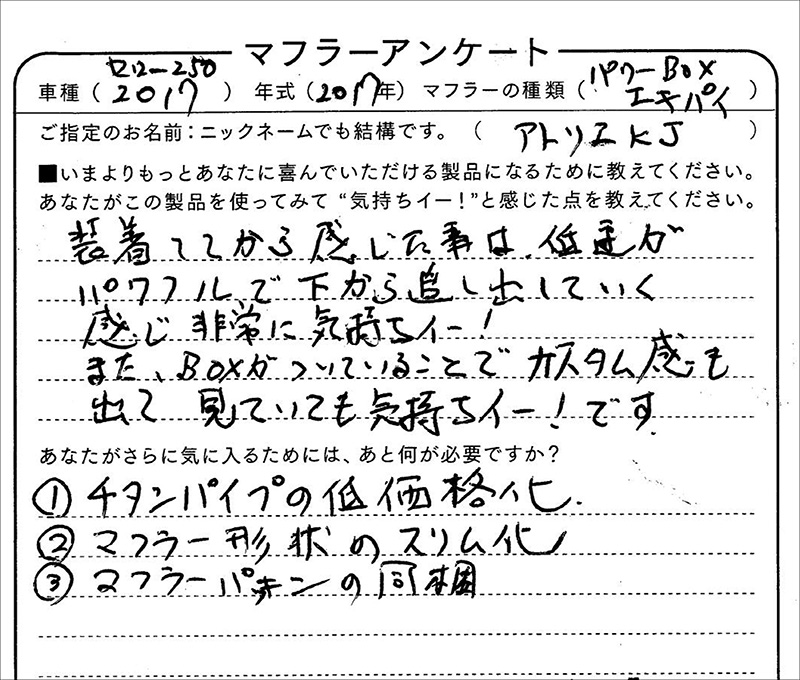 マフラーアンケート
セロー250
車種（2017）年式（2017年）マフラーの種類（パワーBOX エキパイ）
ご指定のお名前：ニックネームでも結構です。（アトリエKJ）
■いまよりもっとあなたに喜んでいただける製品になるために教えてください。
あなたがこの製品を使ってみて“気持ちイー！”と感じた点を教えてください。
装着してから感じた事は、低速が
パワフルで下から追し出していく
感じ 非常に気持ちイー！
また、BOXがついていることでカスタム感も
出て 見ていても気持ちイー！です
あなたがさらに気に入るためには、あと何が必要ですか？
①チタンパイプの低価格化.
②マフラー形状のスリム化
③マフラーパッキンの同梱